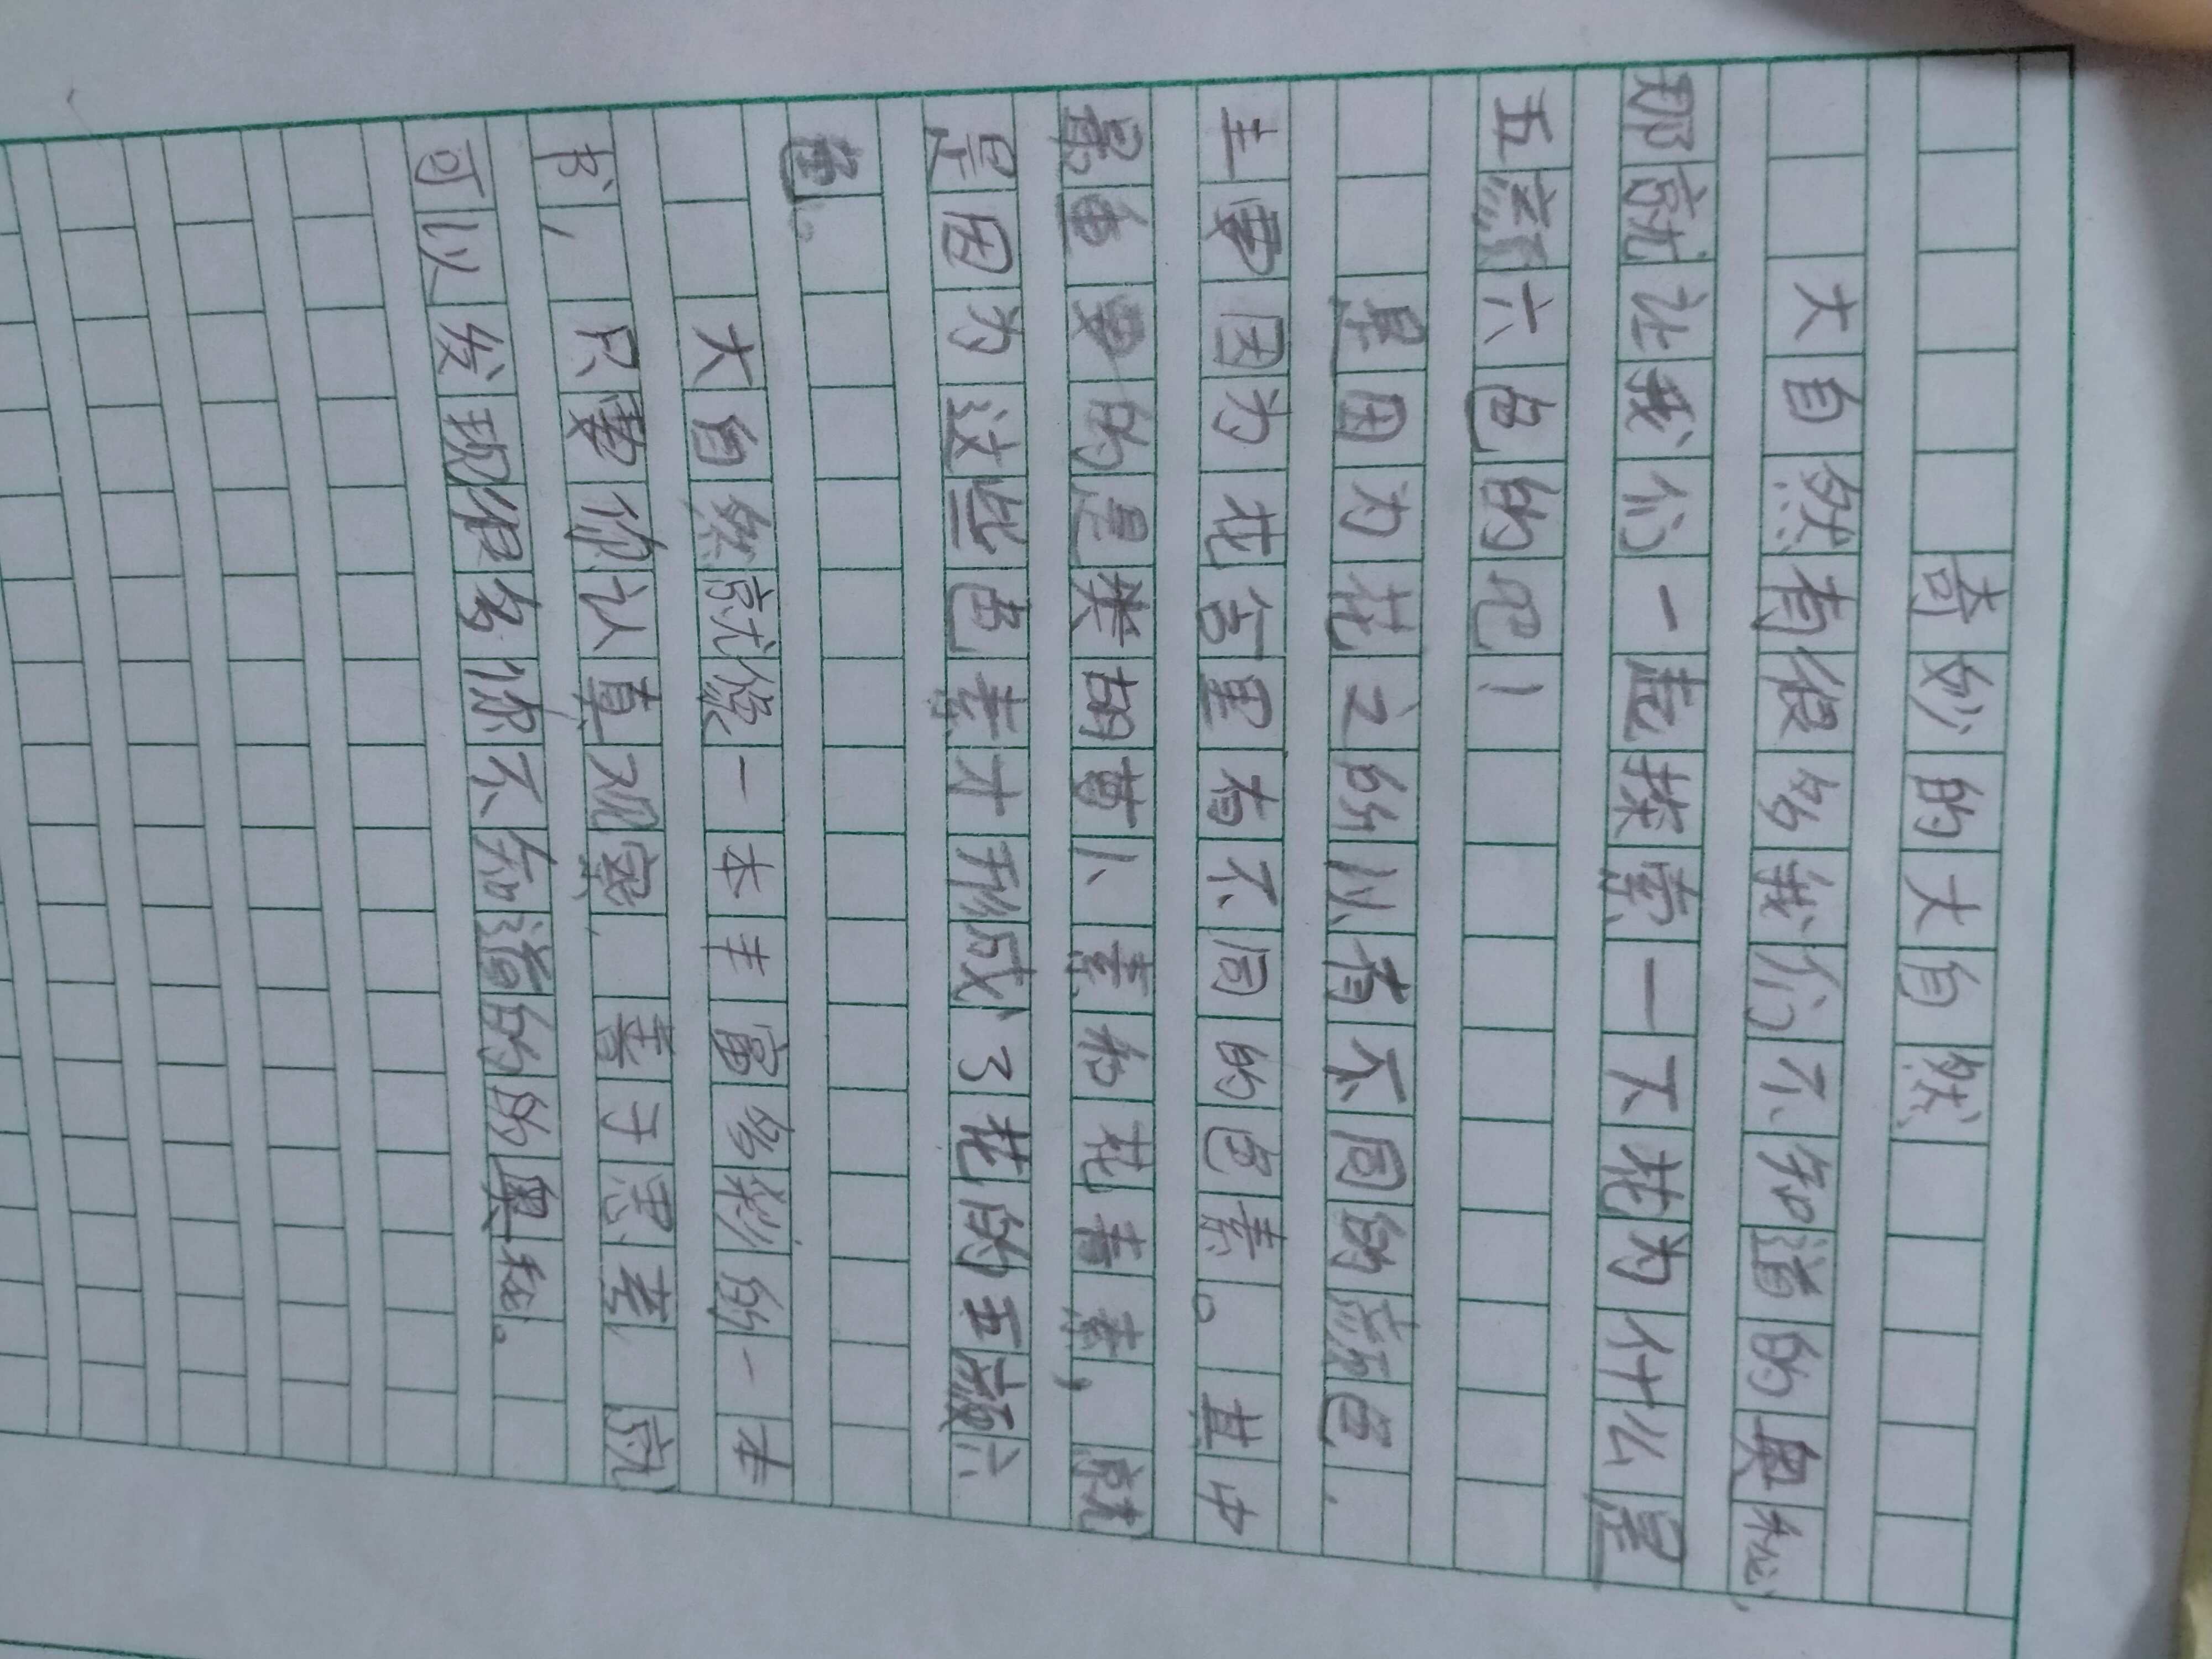 奇妙的大自然
大自然有很多我们不知道的奥秘,
那就让我们一起探索一下花为什么是
五颜六色的吧!
是因为花之所以有不同的颜色.
主要因为花含里有不同的色素。其中
最重要的是类胡萝卜素和花青素,就
是因为这些色素才形成了花的五颜六
色。
大自然就像一本丰富多彩的一本
书,只要你认真观察,善于思考,就
可以发现很多你不知道的的奥秘。